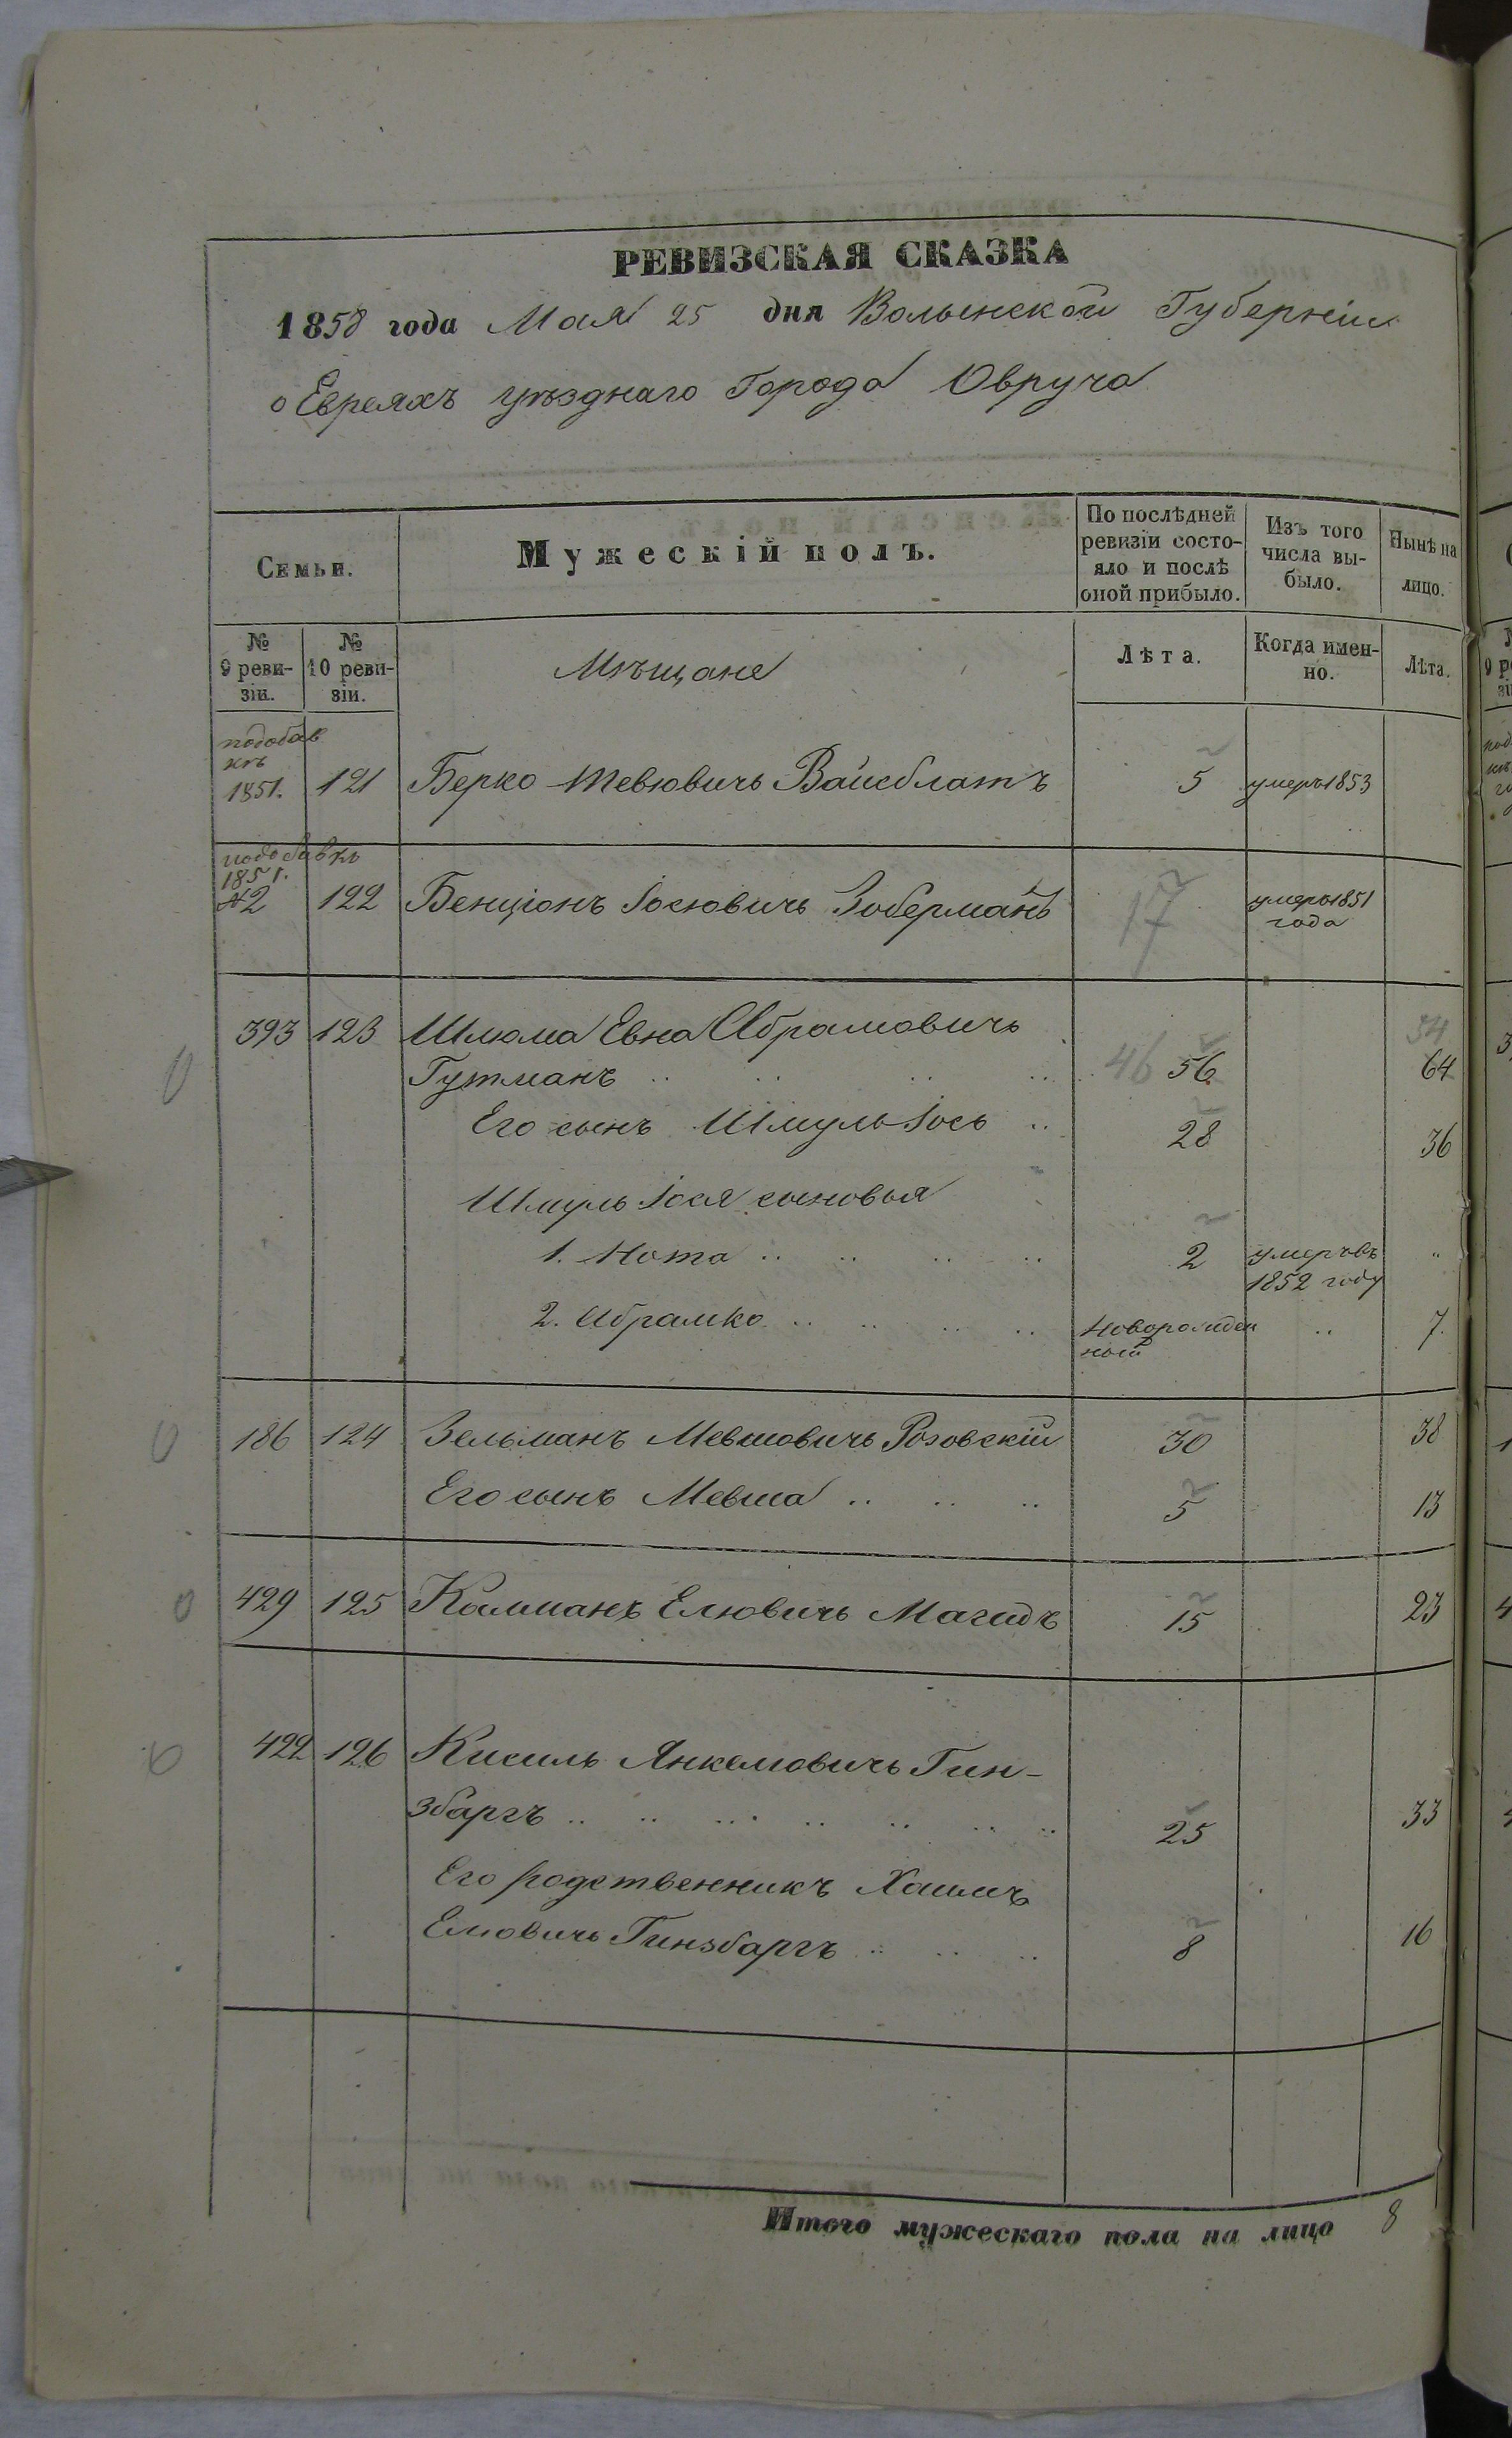 РЕВИЗСКАЯ СКАЗКА
1858 года Мая 25 дня Волынской Губерніи
о Евреяхъ уѣзднаго Города Овруча
Семьи.
Мужескій полъ.
По послѣдней ревизіи состо-
яло и послѣ оной прибыло.
Изъ того числа вы-
было.
Нынѣ на лицо.
№ 9 реви-
зіи.
№ 10 реви-
зіи.
Мѣщане
Лѣта.
Когда имен-
но.
Лѣта.
подобав
кѣ
1851. 121 Берко Тевювичь Вайсблатъ 5 умеръ 1853
подобавкѣ
1851.
№2 122 Бенціонъ Іосювичь Зоберманъ 17 умеръ 1851
года
393 123 Шлюма Евна Абрамовичь 54
Гутманъ .. .. .. .. 46 56 64
Его сынъ Шмуль Іось .. 28 36
Шмуль Іося сыновья
1. Нота .. .. .. .. 2 умеръ въ ..
1852 году
2. Абрамко .. .. .. .. Новорожден .. 7.
ный
186 124 Зельманъ Мевшовичь Розовскій 30 38
Его сынъ Мевша .. .. .. 5 13
429 125 Калманъ Елювичь Магидъ 15 23
422 126 Кисиль Янкелювичь Гин-
збаргъ .. .. .. .. .. .. .. 25 33
Его родственникъ Хаимъ
Елювичь Гинзбаргъ .. .. .. 8 16
Итого мужескаго пола на лицо 8